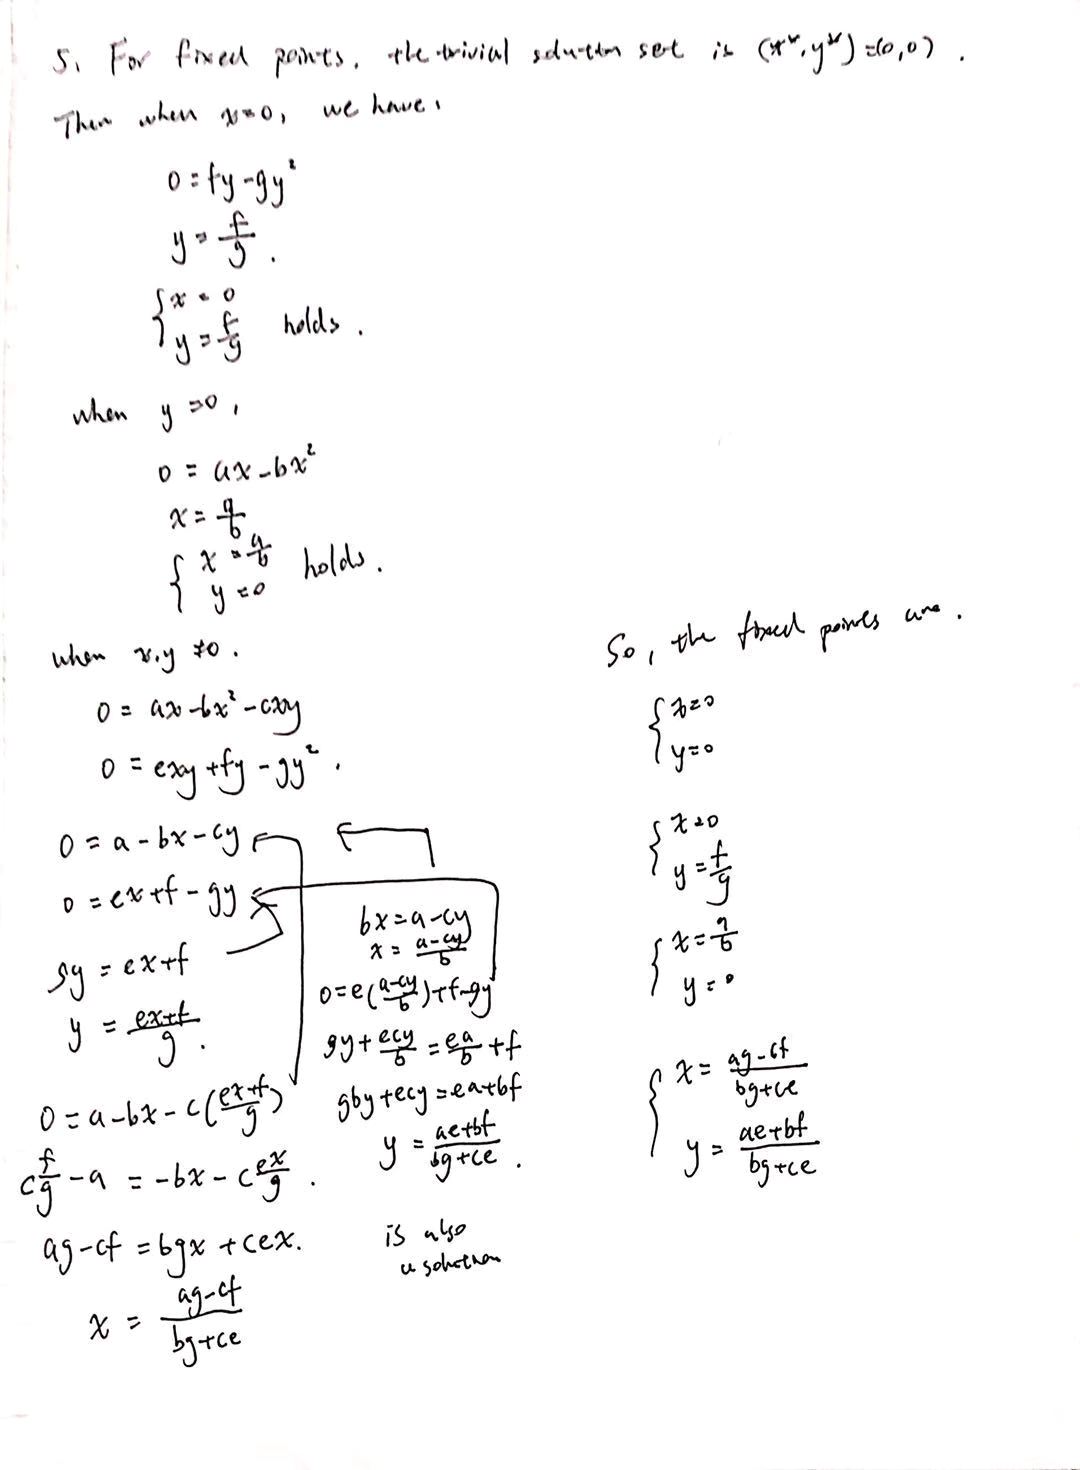 5. For fixed points, the trivial solution set is (x*, y*) = (0,0).
Then when x=0, we have,
0 = fy - gy²
y = f/g.
{ x = 0
y = f/g holds.
when y = 0,
0 = ax - bx²
x = a/b
{ x = a/b
y = 0 holds.
when x,y ≠ 0.
0 = ax - bx² - cxy
0 = exy + fy - gy².
0 = a - bx - cy
0 = ex + f - gy
gy = ex + f
y = (ex+f)/g.
0 = a - bx - c((ex+f)/g)
c f/g - a = -bx - c ex/g.
ag - cf = bgx + cex.
x = (ag-cf)/(bg+ce)
bx = a - cy
x = (a-cy)/b
0 = e((a-cy)/b) + f - gy
gy + ecy/b = ea/b + f
gby + ecy = ea + bf
y = (ae+bf)/(bg+ce).
is also
a solution
So, the fixed points are.
{ x = 0
y = 0
{ x = 0
y = f/g
{ x = a/b
y = 0
{ x = (ag-cf)/(bg+ce)
y = (ae+bf)/(bg+ce)